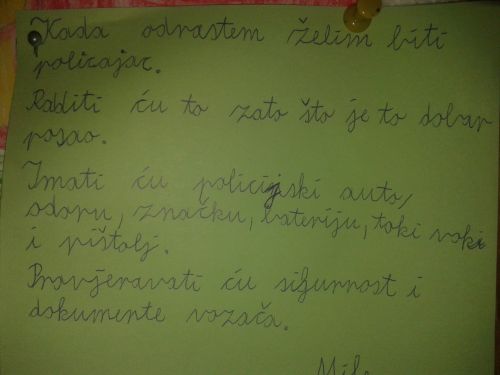 Kada odrastem želim biti
policajac.
Raditi ću to zato što je to dobar
posao.
Imati ću policijski auto,
odoru, značku, bateriju, toki voki
i pištolj.
Provjeravati ću sigurnost i
dokumente vozača.